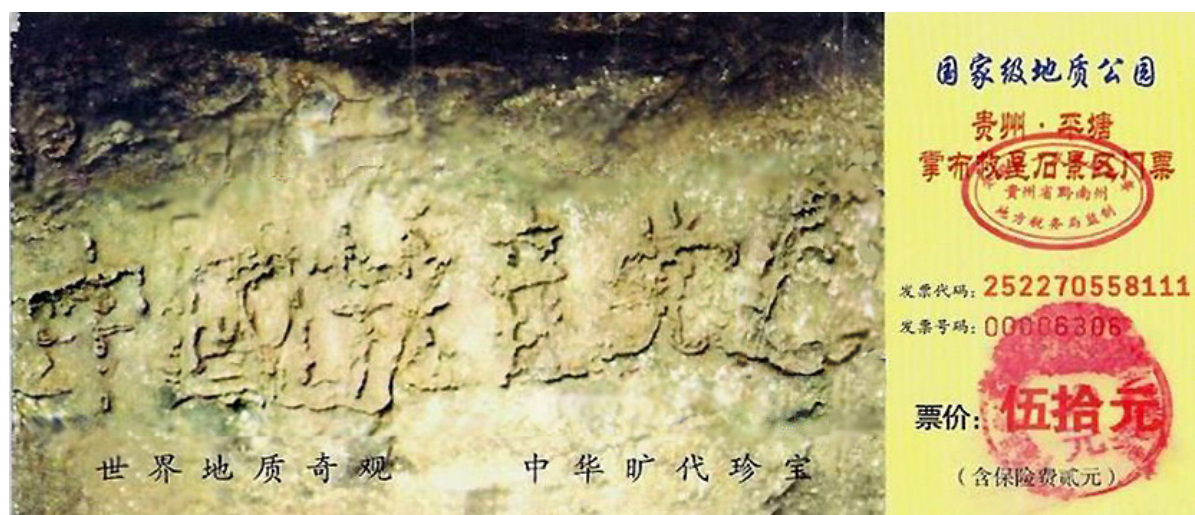 中國共产党亡
世界地质奇观 中华旷代珍宝
国家级地质公园
贵州·平塘
掌布救星石景区门票
貴州省黔南州
地方税务局监制
发票代码: 252270558111
发票号码: 00006306
票价: 伍拾元
(含保险费贰元)